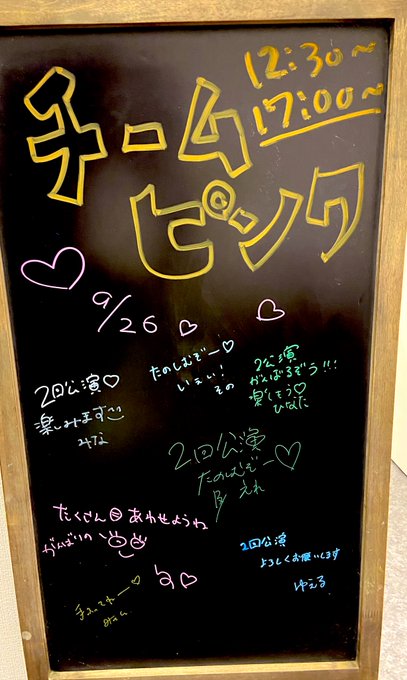 12:30~
17:00~
チーム
ピンク
9/26
2回公演♡
楽しみます
みな
たのしむぞー♡
いぇい!
その
2公演
がんばるぞう!!!
楽しもう♡
ひなた
2回公演
たのしむぞー♡
えれ
たくさん目あわせようね
がんばりの
2回公演
よろしくお願いします
ゆえる